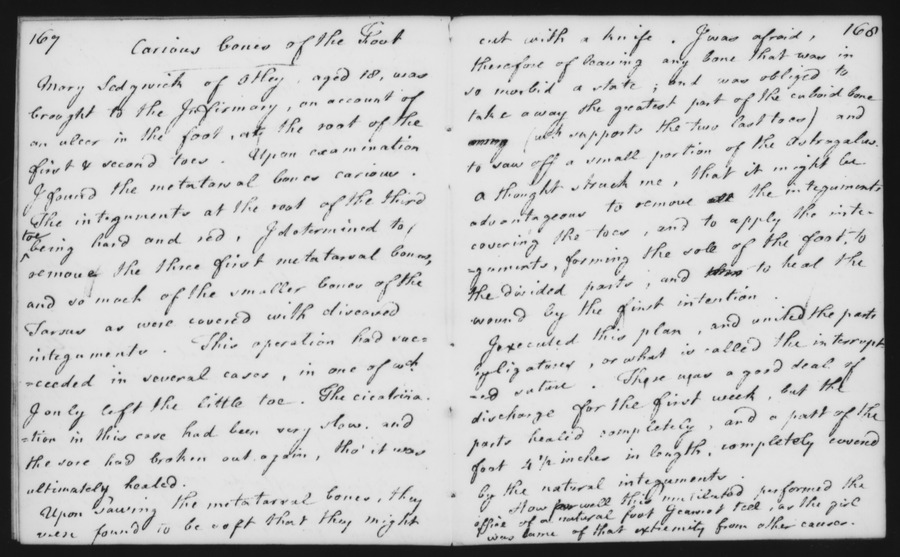 167
Carious bones of the Foot
Mary Sedgwick of Otley aged 18, was
brought to the Infirmary, on account of
an ulcer in the foot, at the root of the
first & second toes. Upon examination
I found the metatarsal bones carious.
The integuments at the root of the third
toe
being hard and red, I determined to
remove the three first metatarsal bones,
and so much of the smaller bones of the
Tarsus as were covered with diseased
integuments. This operation had suc=
=ceeded in several cases, in one of wch
I only left the little toe. The cicatriza=
=tion in this case had been very slow, and
the sore had broken out again, tho' it was
ultimately healed.
Upon sawing the metatarsal bones, they
were found to be soft that they might
168
cut with a knife. I was afraid,
therefore of leaving any bone that was in
so morbid a state; and was obliged to
take away the greatest part of the cuboid bone
(wch supports the two last toes) and
to saw off a small portion of the Astragalus.
A thought struck me, that it might be
advantageous to remove the integuments
covering the toes, and to apply the inte=
=guments, forming the sole of the foot, to
the divided parts, and to heal the
wound by the first intention.
I executed this plan, and united the parts
by ligatures, or what is called the interrupt
=ed suture. There was a good deal of
discharge for the first week, but the
parts healed completely, and a part of the
foot 4 1/2 inches in length, completely covered
by the natural integuments.
How well this mutilated performed the
office of a natural foot I cannot tell, as the girl
was lame of that extremity from other causes.